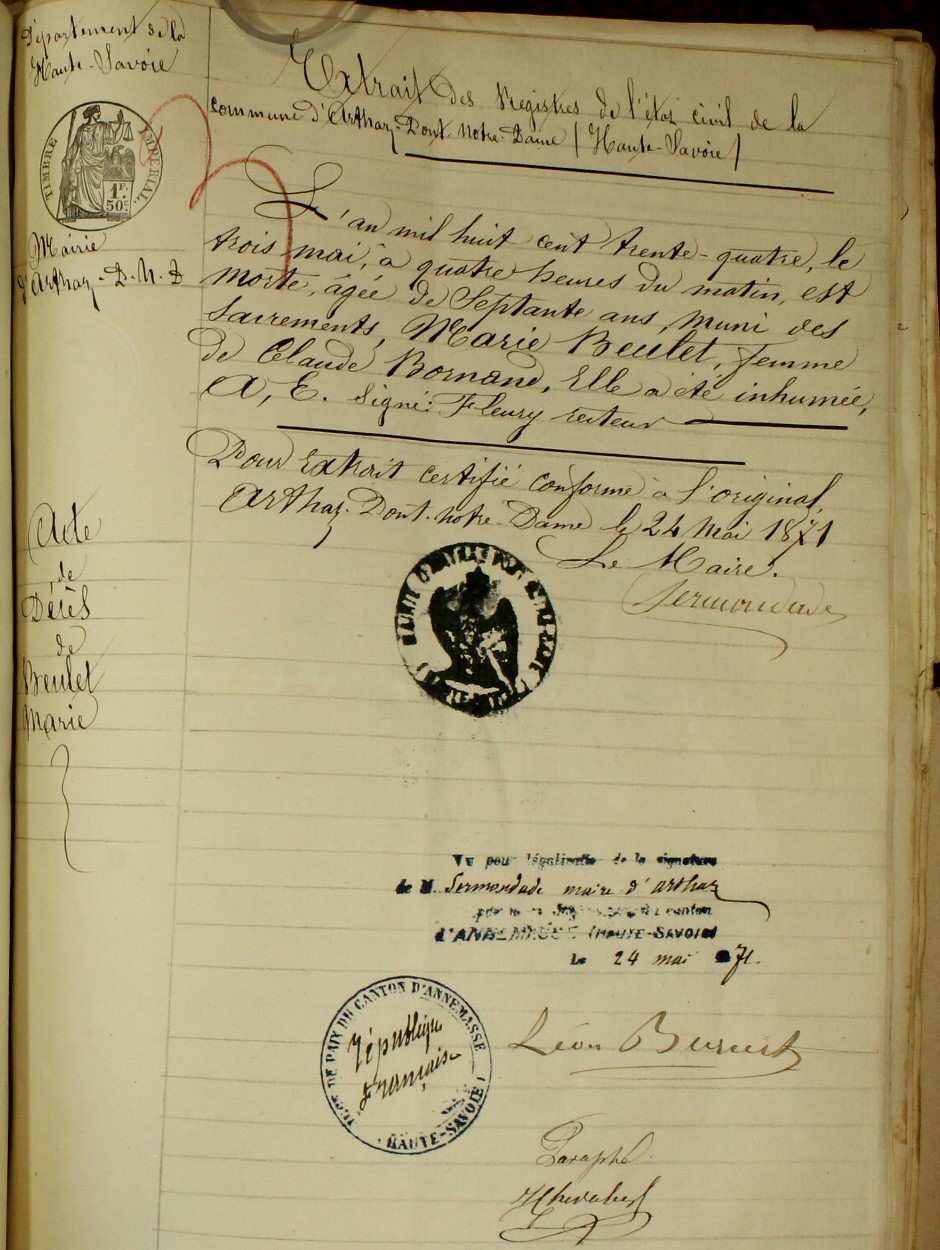 Département de la
Haute-Savoie
TIMBRE IMPERIAL.
1F.
50c
Mairie
d'Arthaz-P-N-D
Extrait des Registres de l'état civil de la
commune d'Arthaz-Pont notre-Dame (Haute-Savoie)
L'an mil huit cent trente-quatre, le
trois mai, à quatre heures du matin, est
morte, âgée de Septante ans, muni des
Sacrements, Marie Beulet, femme
de Claude Bornand, Elle a été inhumée,
A, E. Signé: Fleury recteur
Pour Extrait certifié conforme à l'original,
Arthaz-Pont-notre-Dame le 24 Mai 1871
Le Maire.
Sermondade
Acte
de
Décès
de
Beulet
Marie
Vu pour légalisation de la signature
de M. Sermondade maire d'arthaz
canton
d'ANNEMASSE (HAUTE-SAVOIE)
Le 24 mai 71.
DE PAIX DU CANTON D'ANNEMASSE
République
Française
HAUTE-SAVOIE
Léon
Paraphé